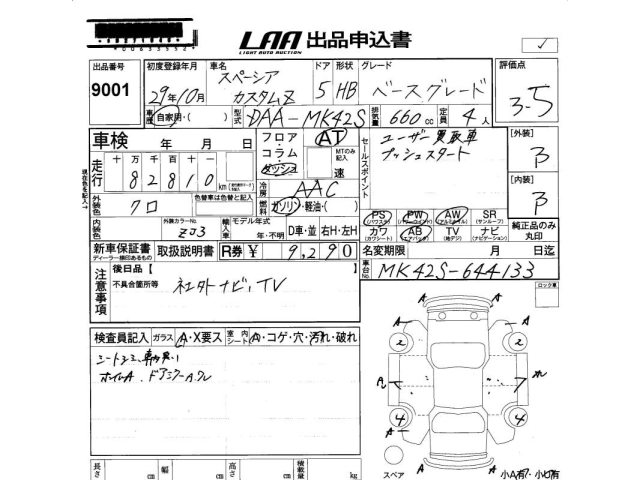 LAA 出品申込書
LIGHT AUTO AUCTION
出品番号 初度登録年月 車名 ドア 形状 グレード 評価点
9001 29年10月 スペーシア カスタムZ 5 HB ベースグレード 3-5
車歴 自家用・( ) 型式 DAA-MK42S 排気量 660cc 定員 4人
車検 年 月 日 フロア・コラム・ダッシュ AT MTのみ記入 速 セールスポイント ユーザー買取車 [外装] B
プッシュスタート
走行 十万千百十 82810 km
現在色を記入↑
冷房 AAC [内装] B
外装色 クロ 色替車は色替と記入 燃料 ガソリン・軽油・( )
PS PW AW SR 純正品のみ丸印
(パワステ) (パワーウインド) (アルミホイル) (サンルーフ)
カワ AB TV ナビ
(カワシート) (エアバッグ) (地デジ) (ナビゲーション)
内装色 外装カラーNo. ZJ3 輸入車 モデル年式 年・不明 D車・並 右H・左H
新車保証書 取扱説明書 R券 ¥ 9,290 名変期限 月 日迄
ディーラー捺印あるもの
車台No. MK42S-644133
注意事項 後日品【 】
不具合箇所等 社外ナビ、TV
ロック車
検査員記入 ガラス A・X要ス 室内シート A・コゲ・穴・汚れ・破れ
ホイルA、ドアミラーAワレ
A A
2 2
A
4 4
A A
スペア
長さ cm 幅 cm 高さ cm 積載量 kg